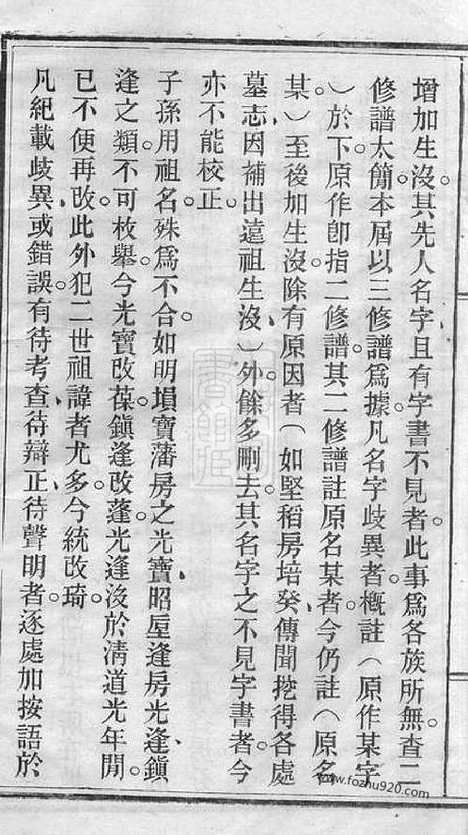 增加生沒其先人名字且有字書不見者。此事爲各族所無。查二
修譜太簡。本屆以三修譜爲據。凡名字歧異者。槪註（原作某字
）於下。原作卽指二修譜。其二修譜註原名某者。今仍註（原名
某）至後加生沒。除有原因者（如堅稻房培癸傳聞挖得各處
墓志。因補出遠祖生沒、）外。餘多刪去。其名字之不見字書者。今
亦不能校正。
子孫用祖名。殊爲不合。如明塤寶藩房之光寶、昭垕逢房光逢、鎭
逢之類。不可枚舉。今光寶改葆。鎭逢改蓬。光逢沒於淸道光年閒。
已不便再改。此外犯二世祖諱者尤多。今統改琦。
凡紀載歧異。或錯誤。有待考查、待辯正、待聲明者。逐處加按語於
www.fozhu920.com